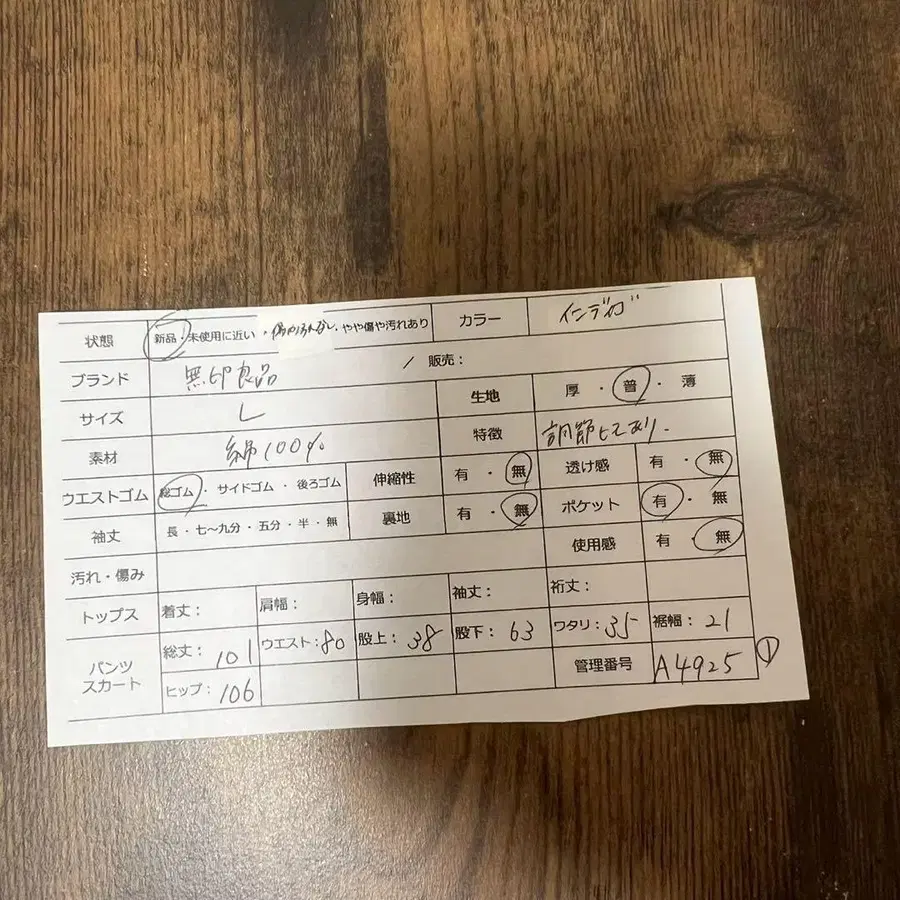 状態 新品・未使用に近い・傷や汚れなし・やや傷や汚れあり カラー インディゴ
ブランド 無印良品 / 販売：
サイズ L 生地 厚・普・薄
素材 綿100% 特徴 調節ヒモあり.
ウエストゴム 総ゴム・サイドゴム・後ろゴム 伸縮性 有・無 透け感 有・無
袖丈 長・七〜九分・五分・半・無 裏地 有・無 ポケット 有・無
汚れ・傷み 使用感 有・無
トップス 着丈： 肩幅： 身幅： 袖丈： 裄丈：
パンツ スカート 総丈：101 ウエスト：80 股上：38 股下：63 ワタリ：35 裾幅：21
ヒップ：106 管理番号 A4925 ①